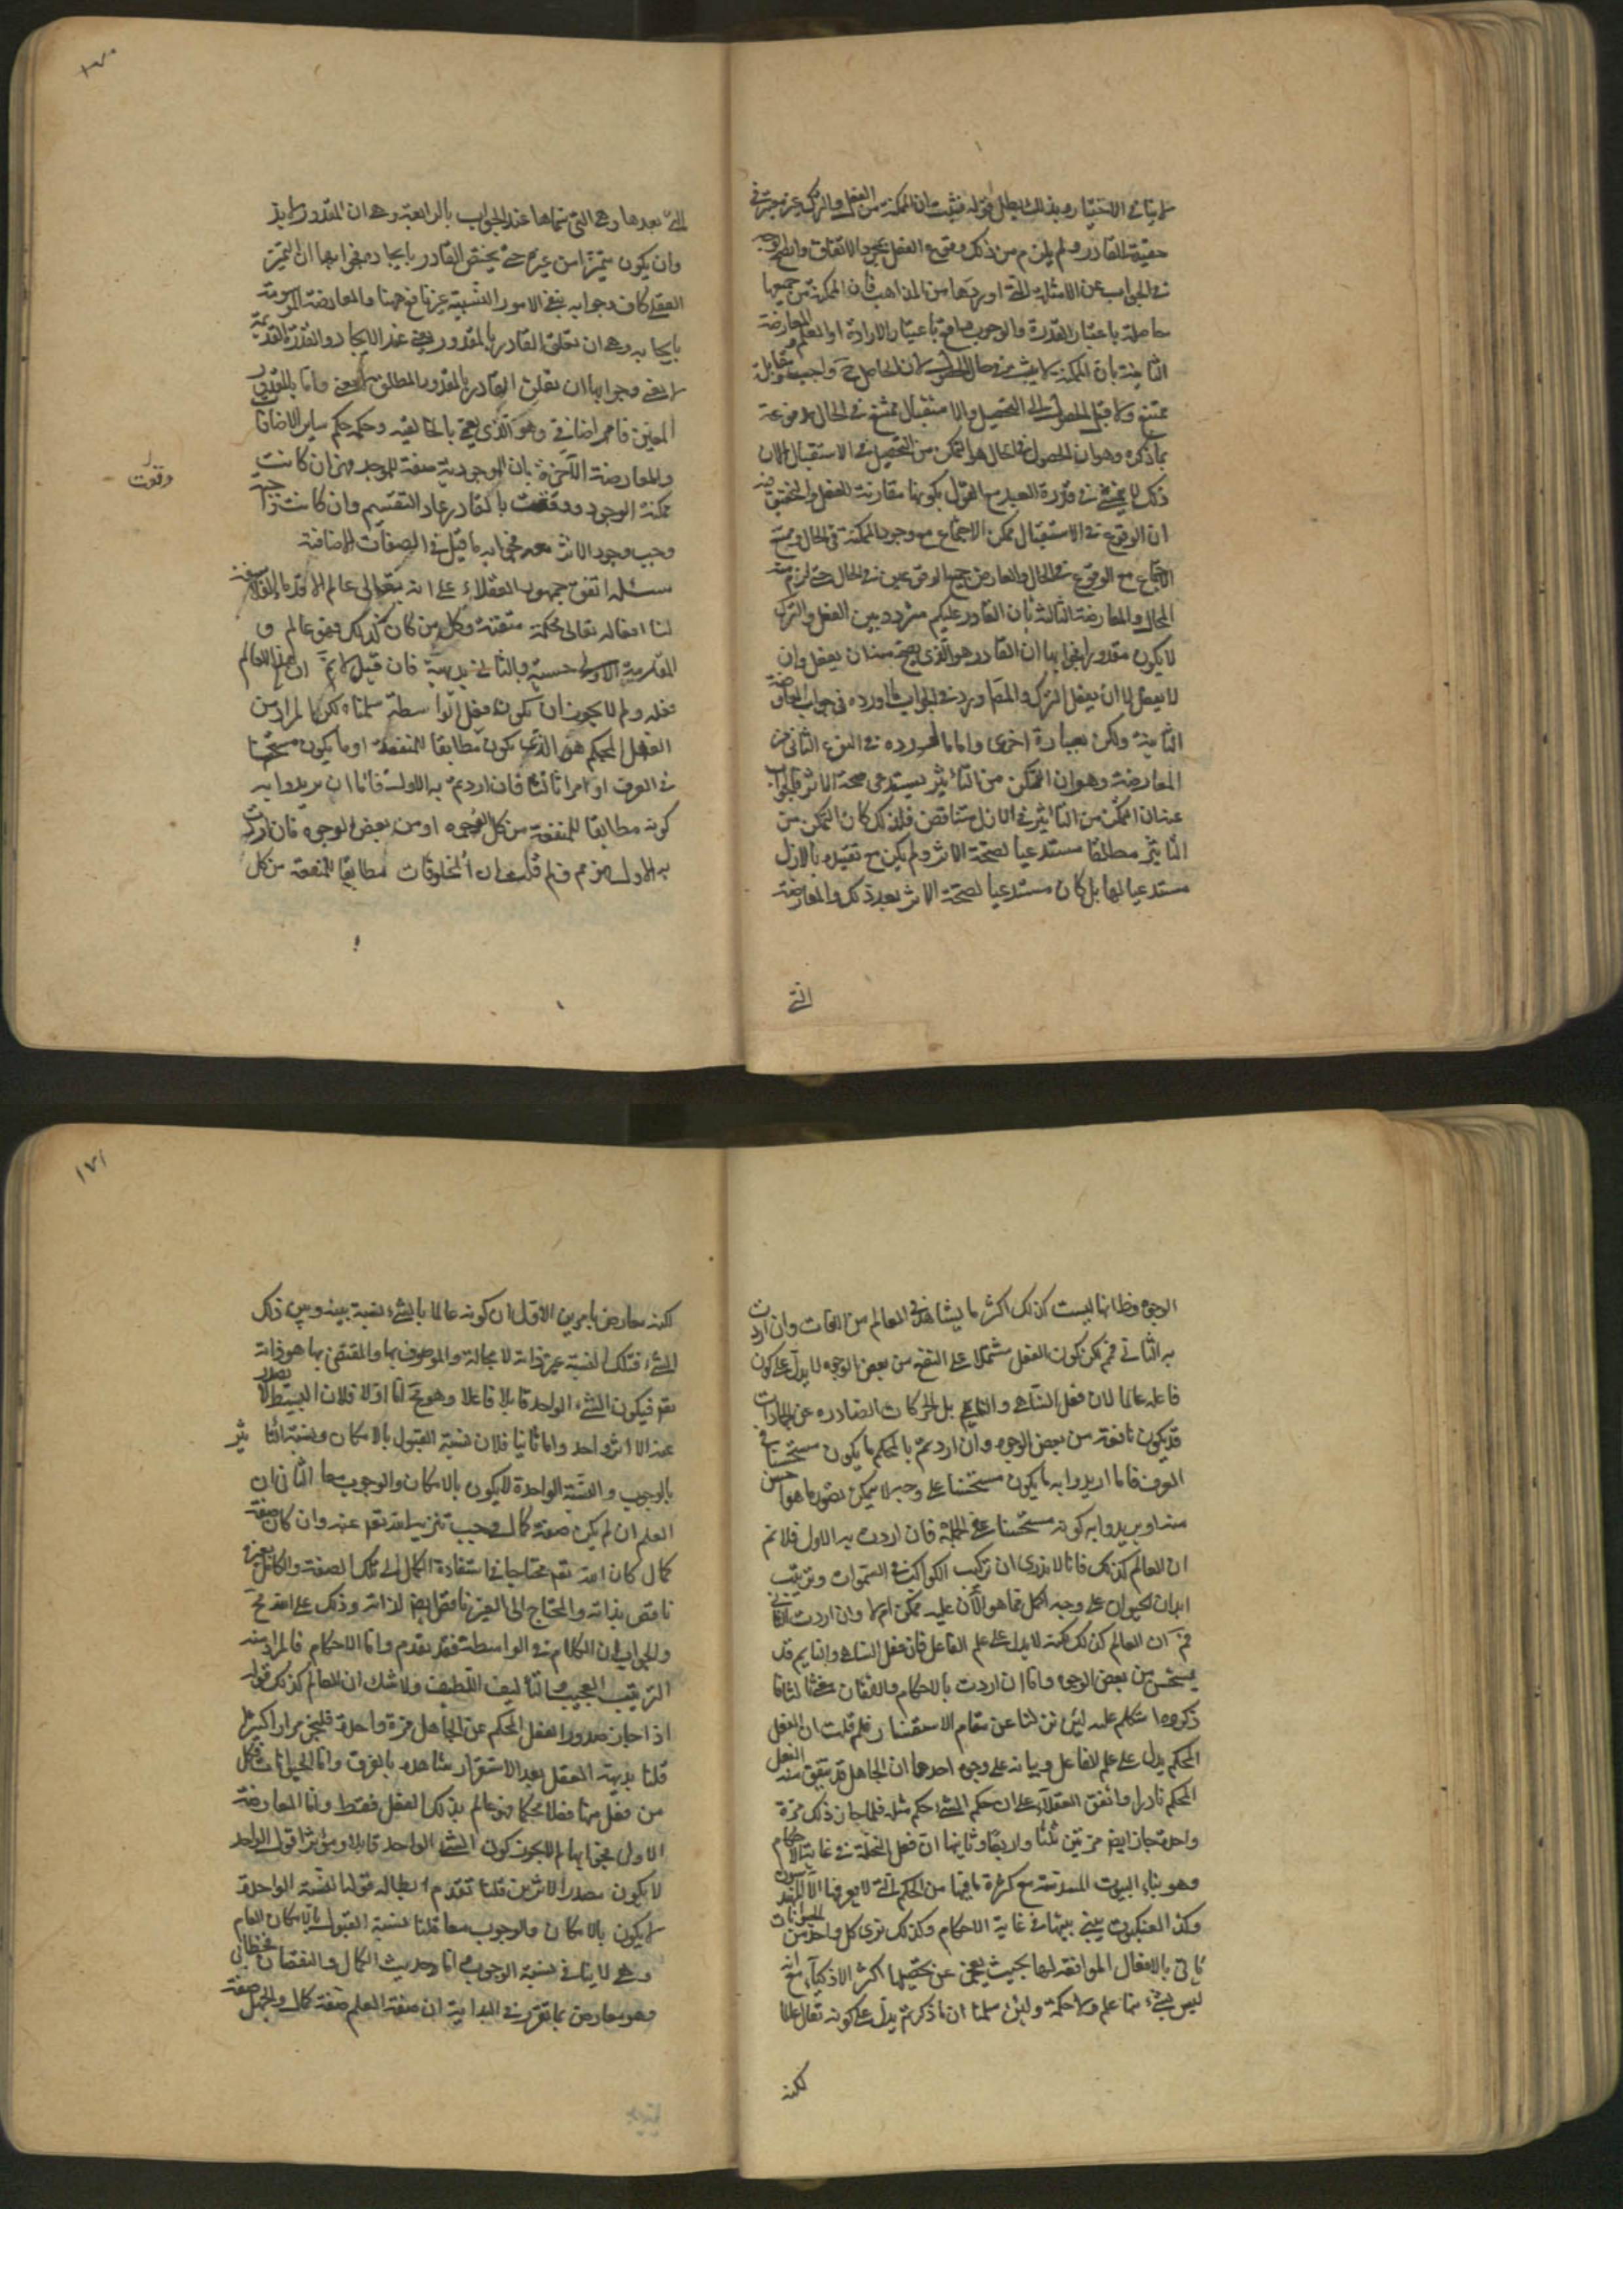 لا ينافي الاختيار وبذلك يبطل قوله فثبت ان المكنة من الفعل والترك غير معتبرة في
حقيقة القادر ولم يلزم من ذلك وقوع الفعل بمجرد الاتفاق واتضح الوجه
في الجواب عن الامثلة التي اوردها من المذاهب فان المكنة من جميعها
حاصلة باعتبار القدرة والوجوب باعتبار الارادة او العلم والمعارضة
الثانية بان المكنة لا يثبت في حال الحصول لان الحاصل ح واجب ومقابله
ممتنع ولا قبل الحصول الى التحصيل والاستقبال ممتنع في الحال
بما ذكره وهو ان الحصول في الحال هو التمكن من التحصيل في الاستقبال الا ان
ذلك لا يتمشى في قدرة العبد مع القول بكونها مقارنة للفعل والتحقيق فيه
ان الوقوع في الاستقبال ممكن الاجتماع مع وجود المكنة في الحال وممتنع
الاجتماع مع الوقوع في الحال والمعارض جمع الوقوعين في الحال حتى لزم منه
المحال والمعارضة الثالثة بان القادر عليكم متردد بين الفعل والترك
لا يكون مقدورا فجوابها ان القادر هو الذي يصح منه ان يفعل وان
لا يفعل لا ان يفعل الترك والمص اورد في الجواب ما اورده في جواب المعارضة
الثانية ولكن بعبارة اخرى واما ما اورده في النوع الثاني من
المعارضة وهو ان التمكن من التأثير يستدعي صحة الاثر فالجواب
عنه ان التمكن من التأثير في الازل متناقض فلذلك كان التمكن من
التأثير مطلقا مستدعيا لصحة الاثر ولم يكن مع تقيده بالازل
مستدعيا لها بل كان مستدعيا لصحة الاثر بعد ذلك والمعارضة
التي
١٧٠
التي بعدها وهي التي سماها عند الجواب بالرابعة وهي ان المقدور لا بد
وان يكون متميزا من غيره حتى يختص القادر بايجاده فجوابها ان التميز
العقلي كاف وجوابه بنفي الامور النسبية غير نافع ههنا والمعارضة الموسومة
بايجابه وهي ان تعلق القادر بالمقدور يفنى عند الايجاد والقدرة القديمة
لا يفنى وجوابها ان تعلق القادر بالمقدور المطلق لا يفنى واما بالمقدور
المعين فامر اضافي وهو الذي يسمى بالخالقية وحكمه حكم ساير الاضافات
والمعارضة الاخيرة بان الموجدية صفة للموجد فهي ان كانت
ممكنة الوجود ووقعت بالقادر عاد التقسيم وان كانت واجبة
وجب وجود الاثر معه فجوابه ما قيل في الصفات الاضافية
وقعت
مسئله اتفق جمهور العقلاء على انه تعالى عالم الا قدماء الفلاسفة
لنا افعاله تعالى محكمة متقنة وكل من كان كذلك فهو عالم و
المقدمة الاولى حسية والثانية بديهية فان قيل لا نم ان هذا العالم
فعله ولم لا يجوز ان يكون فعل الواسطة سلمناه لكن ما المراد من
الفعل المحكم هو الذي يكون مطابقا للمنفعة او ما يكون مستحسنا
في العرف او امرا ثالثا فان اردتم به الاول فاما ان يريدوا به
كونه مطابقا للمنفعة من كل الوجوه او من بعض الوجوه فان اردت
به الاول فهو مم فلم قلتم ان المخلوقات مطابقة للمنفعة من كل
الوجوه وظاهر انها ليست كذلك اكثر ما يشاهد في العالم من الافات وان اردت
به الثاني فمم لكن كون الفعل مشتملا على النفع من بعض الوجوه لا يدل على كون
فاعله عالما لان فعل الساهي والنايم بل الحركات الصادره عن الجمادات
قد يكون نافعة من بعض الوجوه وان اردتم بالمحكم ما يكون مستحسنا في
العرف فاما اريدوا به ما يكون مستحسنا على وجه لا يمكن تصور ما هو احسن
منه او يريدوا به كونه مستحسنا في الجملة فان اردت به الاول فلا نم
ان العالم كذلك فانا لا ندري ان تركيب الكواكب في السموات وترتيب
ابدان الحيوان على وجه اكمل مما هو الان عليه ممكن ام لا وان اردت الثاني
فمم ان العالم كذلك لكنه لا يدل على علم الفاعل فان فعل الساهي والنايم قد
يستحسن من بعض الوجوه واما ان اردت بالاحكام والاتقان معنى ثالثا
فاذكروه لنتكلم عليه لئن نزلنا عن مقام الاستفسار فلم قلت ان الفعل
المحكم يدل على علم الفاعل وبيانه على وجوه احدها ان الجاهل قد يتفق منه الفعل
المحكم نادرا واتفق العقلاء على ان حكم الشئ حكم مثله فلما جاز ذلك مرة
واحدة جاز ايضا مرتين وثلثا واربعا وثانيها ان فعل النحلة في غاية الاحكام
وهو بناء البيوت المسدسة مع كثرة ما فيها من الحكم التي لا يعرفها الا المهندسون
وكذا العنكبوت يبني بيتها في غاية الاحكام وكذلك نرى كل واحد من الحيوانات
ياتي بالافعال الموافقة لها بحيث يعجز عن تحصيلها اكثر الاذكياء مع انه
ليس لشئ منها علم ولا حكمة ولئن سلمنا ان ما ذكرتم يدل على كونه تعالى عالما
لكنه
١٧١
لكنه معارض بامرين الاول ان كونه عالما بالشئ نسبة بينه وبين ذلك
الشئ فتلك النسبة غير ذاته لا محالة والموصوف بها والمقتضي بها هو ذاته
تعم فيكون الشئ الواحد قابلا فاعلا وهو مح اما اولا فلان البسيط لا يصدر
عنه الا اثر واحد واما ثانيا فلان نسبة القبول بالامكان ونسبة التأثير
بالوجوب والنسبة الواحدة لا يكون بالامكان والوجوب معا الثاني ان
العلم ان لم يكن صفة كمال وجب تنزيه الله تعم عنه وان كان صفة
كمال كان الله تعم محتاجا في استفادة الكمال الى تلك الصفة والكامل بغيره
ناقص بذاته والمحتاج الى الغير ناقص ايضا لذاته وذلك على الله مح
والجواب ان الكلام في الواسطة فقد تقدم واما الاحكام فالمراد منه
الترتيب العجيب والتأليف اللطيف ولا شك ان العالم كذلك قوله
اذا جاز صدور الفعل المحكم عن الجاهل مرة واحدة فليجز مرارا كثيرة
قلنا بديهة العقل بعد الاستقراء شاهدة بالفرق واما الحيوانات فكل
من فعل منها فعلا محكما فهو عالم بذلك الفعل فقط واما المعارضة
الاولى فجوابها لم لا يجوز كون الشئ الواحد قابلا ومؤثرا قوله الواحد
لا يكون مصدرا لاثرين قلنا تقدم ابطاله قوله النسبة الواحدة
لا يكون بالامكان والوجوب معا قلنا نسبة القبول بالامكان العام
وهي لا ينافي نسبة الوجوب واما حديث الكمال والنقصان فخطابي
وهو معارض بما تقرر في البداية ان صفة العلم صفة كمال والجهل صفة